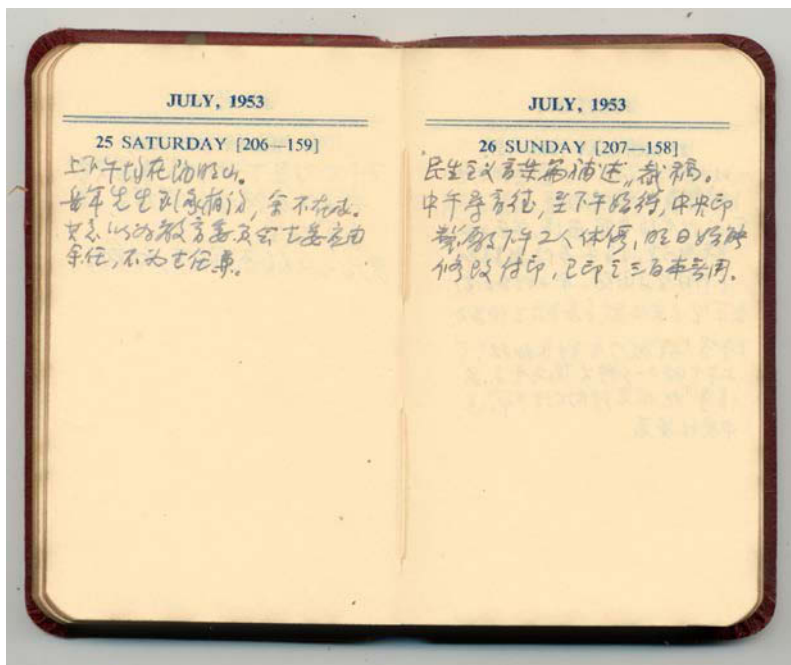 JULY, 1953
25 SATURDAY [206—159]
上下午均在陽明山。
岳軍先生到家補訪,余不在家。
其意以為教育委員会主委应由
余任,不為主任

JULY, 1953
26 SUNDAY [207—158]
民生主义育楽两篇補述,裁稿。
中午尋育徒,至下午始待,中央印
製厰下午工人休假,明日始改
修改付印,已印之三百本